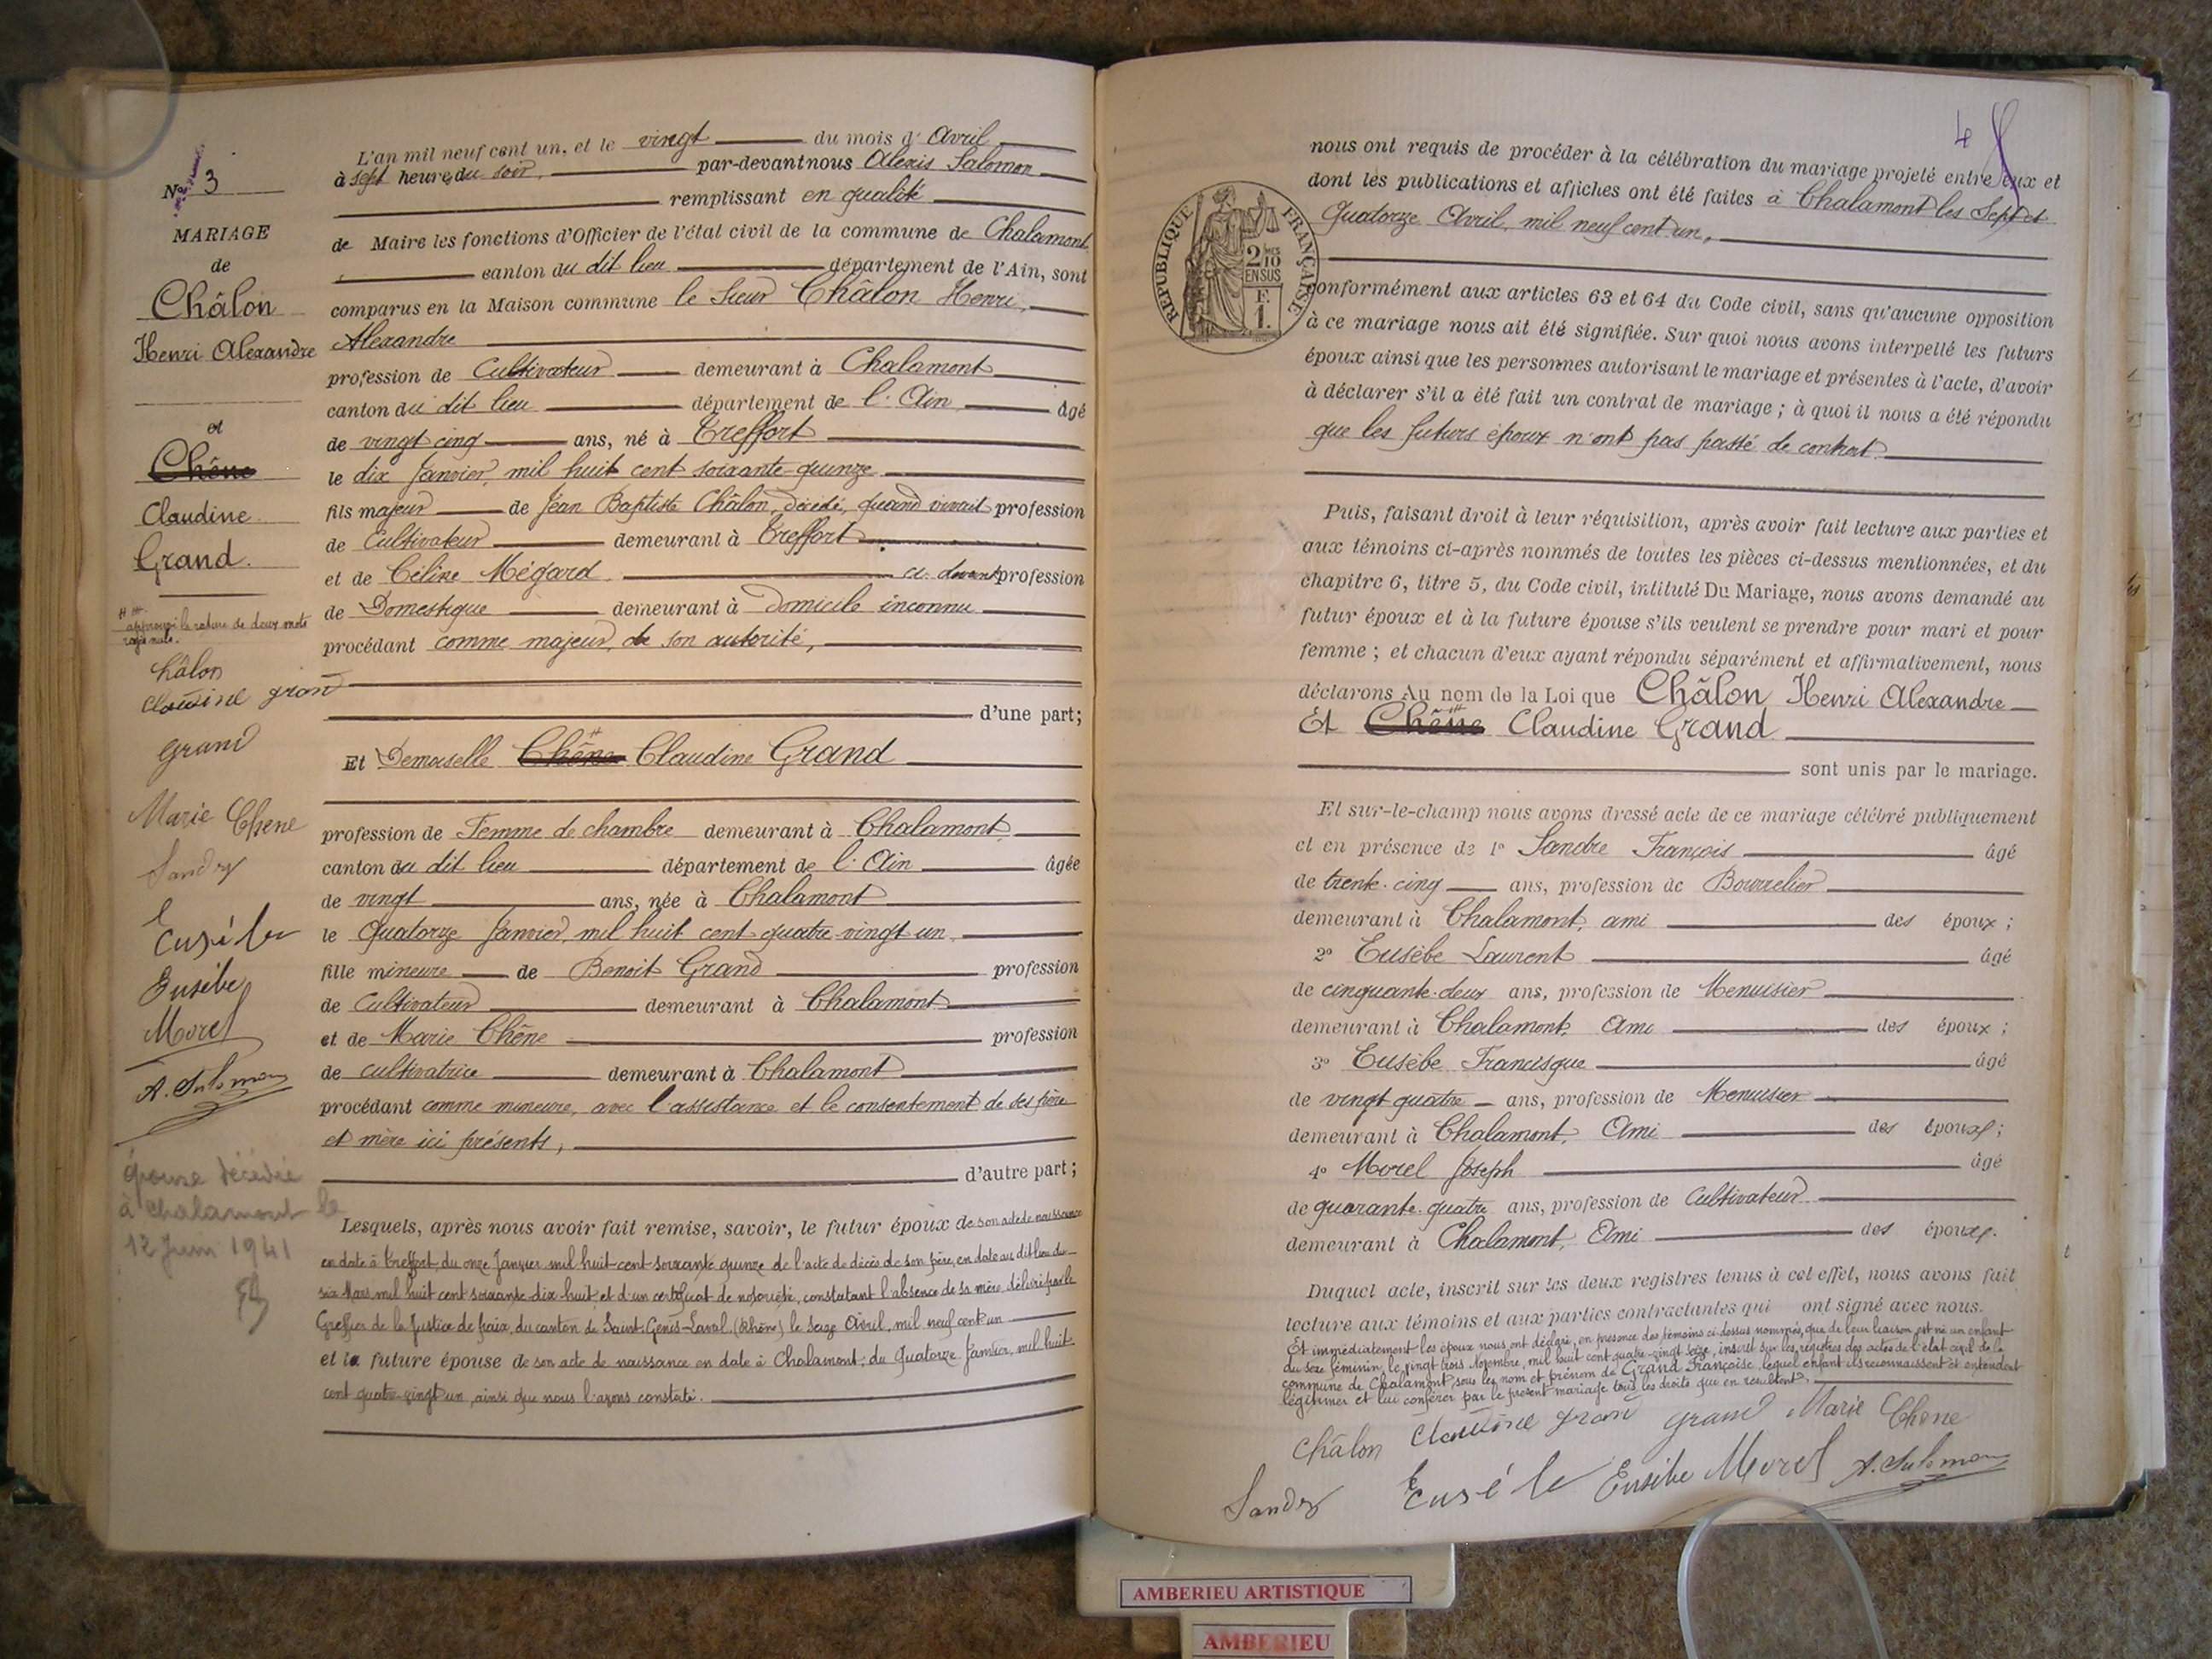 N° 3
MARIAGE
de
Châlon
Henri Alexandre
et
Chêne
Claudine
Grand.
approuvé la rature de deux mots
rayés nuls.
Châlon
Claudine gran
grand
Marie Chene
Sandre
Eusébe
Eusèbe
Morel
A. Salomon
épouse décédée
à Chalamont le
12 Juin 1941
L'an mil neuf cent un, et le vingt du mois d'Avril
à sept heures du soir, par-devant nous Alexis Salomon
remplissant en qualité
de Maire les fonctions d'Officier de l'état civil de la commune de Chalamont
canton du dit lieu département de l'Ain, sont
comparus en la Maison commune le Sieur Châlon Henri,
Alexandre
profession de Cultivateur demeurant à Chalamont
canton du dit lieu département de l'Ain âgé
de vingt cinq ans, né à Treffort
le dix Janvier, mil huit cent soixante-quinze
fils majeur de Jean Baptiste Châlon, décédé, quand vivait profession
de Cultivateur demeurant à Treffort
et de Céline Mégard ci-devant profession
de Domestique demeurant à Domicile inconnu
procédant comme majeur, de son autorité,
d'une part;
Et Demoiselle Chêne Claudine Grand
profession de Femme de chambre demeurant à Chalamont
canton du dit lieu département de l'Ain âgée
de vingt ans, née à Chalamont
le Quatorze Janvier, mil huit cent quatre-vingt un
fille mineure de Benoit Grand profession
de Cultivateur demeurant à Chalamont
et de Marie Chêne profession
de cultivatrice demeurant à Chalamont
procédant comme mineure, avec l'assistance et le consentement de ses père
et mère ici présents,
d'autre part;
Lesquels, après nous avoir fait remise, savoir, le futur époux de son acte de naissance
en date à Treffort, du onze Janvier mil huit cent soixante quinze de l'acte de décès de son père, en date au dit lieu du
six Mars mil huit cent soixante-dix-huit et d'un certificat de notoriété, constatant l'absence de sa mère délivré par le
Greffier de la Justice de paix, du canton de Saint-Genis-Laval, (Rhône) le Seize Avril, mil neuf cent un
et la future épouse de son acte de naissance en date à Chalamont, du Quatorze Janvier, mil huit
cent quatre-vingt un, ainsi que nous l'avons constaté.
4
nous ont requis de procéder à la célébration du mariage projeté entre eux et
dont les publications et affiches ont été faites à Chalamont les Sept et
Quatorze Avril, mil neuf cent un,
REPUBLIQUE FRANÇAISE
2/10 EN SUS
F. 1.
conformément aux articles 63 et 64 du Code civil, sans qu'aucune opposition
à ce mariage nous ait été signifiée. Sur quoi nous avons interpellé les futurs
époux ainsi que les personnes autorisant le mariage et présentes à l'acte, d'avoir
à déclarer s'il a été fait un contrat de mariage; à quoi il nous a été répondu
que les futurs époux n'ont pas passé de contrat.
Puis, faisant droit à leur réquisition, après avoir fait lecture aux parties et
aux témoins ci-après nommés de toutes les pièces ci-dessus mentionnées, et du
chapitre 6, titre 5, du Code civil, intitulé Du Mariage, nous avons demandé au
futur époux et à la future épouse s'ils veulent se prendre pour mari et pour
femme; et chacun d'eux ayant répondu séparément et affirmativement, nous
déclarons Au nom de la Loi que Châlon Henri Alexandre
Et Chêne Claudine Grand
sont unis par le mariage.
Et sur-le-champ nous avons dressé acte de ce mariage célébré publiquement
et en présence de 1° Sandre François âgé
de trente-cinq ans, profession de Bourrelier
demeurant à Chalamont, ami des époux;
2° Eusèbe Laurent âgé
de cinquante-deux ans, profession de Menuisier
demeurant à Chalamont, Ami des époux;
3° Eusèbe Francisque âgé
de vingt quatre ans, profession de Menuisier
demeurant à Chalamont, Ami des époux;
4° Morel Joseph âgé
de quarante-quatre ans, profession de Cultivateur
demeurant à Chalamont, Ami des époux.
Duquel acte, inscrit sur les deux registres tenus à cet effet, nous avons fait
lecture aux témoins et aux parties contractantes qui ont signé avec nous.
Et immédiatement les époux nous ont déclaré, en présence des témoins ci-dessus nommés, que de leur liaison est né un enfant
du sexe féminin, le vingt trois Novembre, mil huit cent quatre-vingt seize, inscrit sur les registres des actes de l'état civil de la
commune de Chalamont, sous les nom et prénom de Grand Françoise, lequel enfant ils reconnaissent et entendent
légitimer et lui conférer par le présent mariage tous les droits qui en résultent.
Châlon Claudine gran grand Marie Chene
Sandre Eusébe Eusèbe Morel A. Salomon
AMBERIEU ARTISTIQUE
AMBERIEU